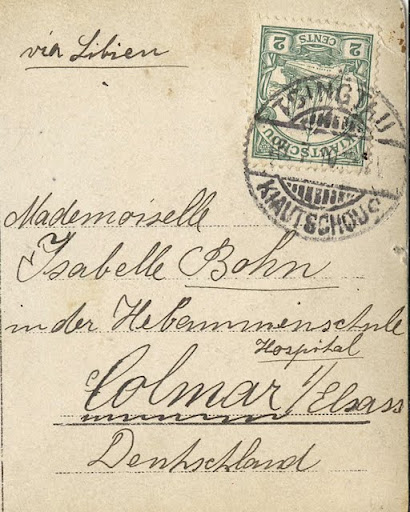 via Sibien
2 CENTS 2
KIAUTSCHOU
TSINGTAU
KIAUTSCHOU
Mademoiselle
Isabelle Bohn
in der Hebammenschule
Hospital
Colmar i/Elsass
Deutschland